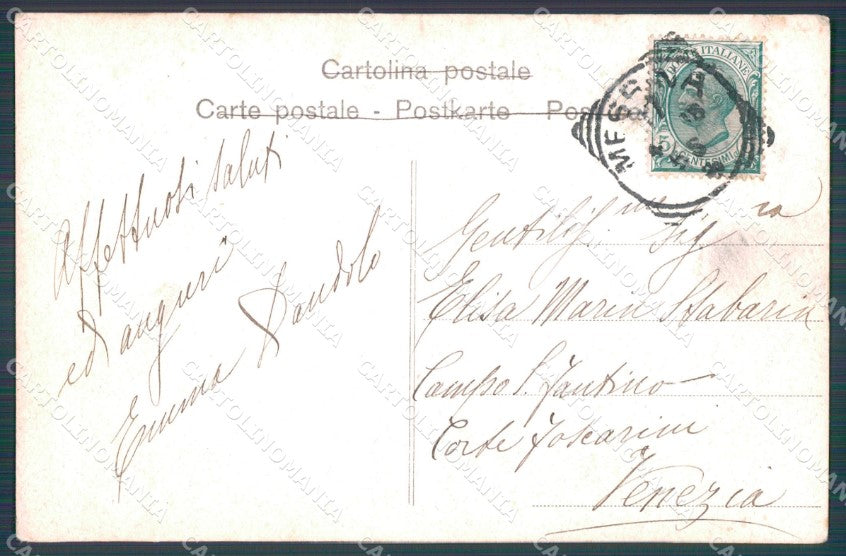 Cartolina postale
Carte postale - Postkarte Pos
POSTE ITALIANE
5
CENTESIMI
Affettuosi saluti
ed auguri
Emma Dandolo
Gentiliss.ma Sig.ra
Elisa Marin
Campo S. Fantino
Corte Foscarini
Venezia
CARTOLINOMANIA